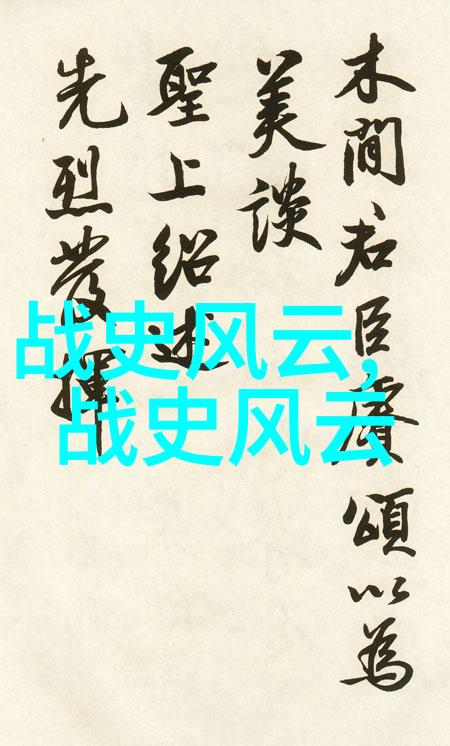 木間君臣賡頌以為
美談
聖上紹述
先烈發揮
战史风云,
战史风云